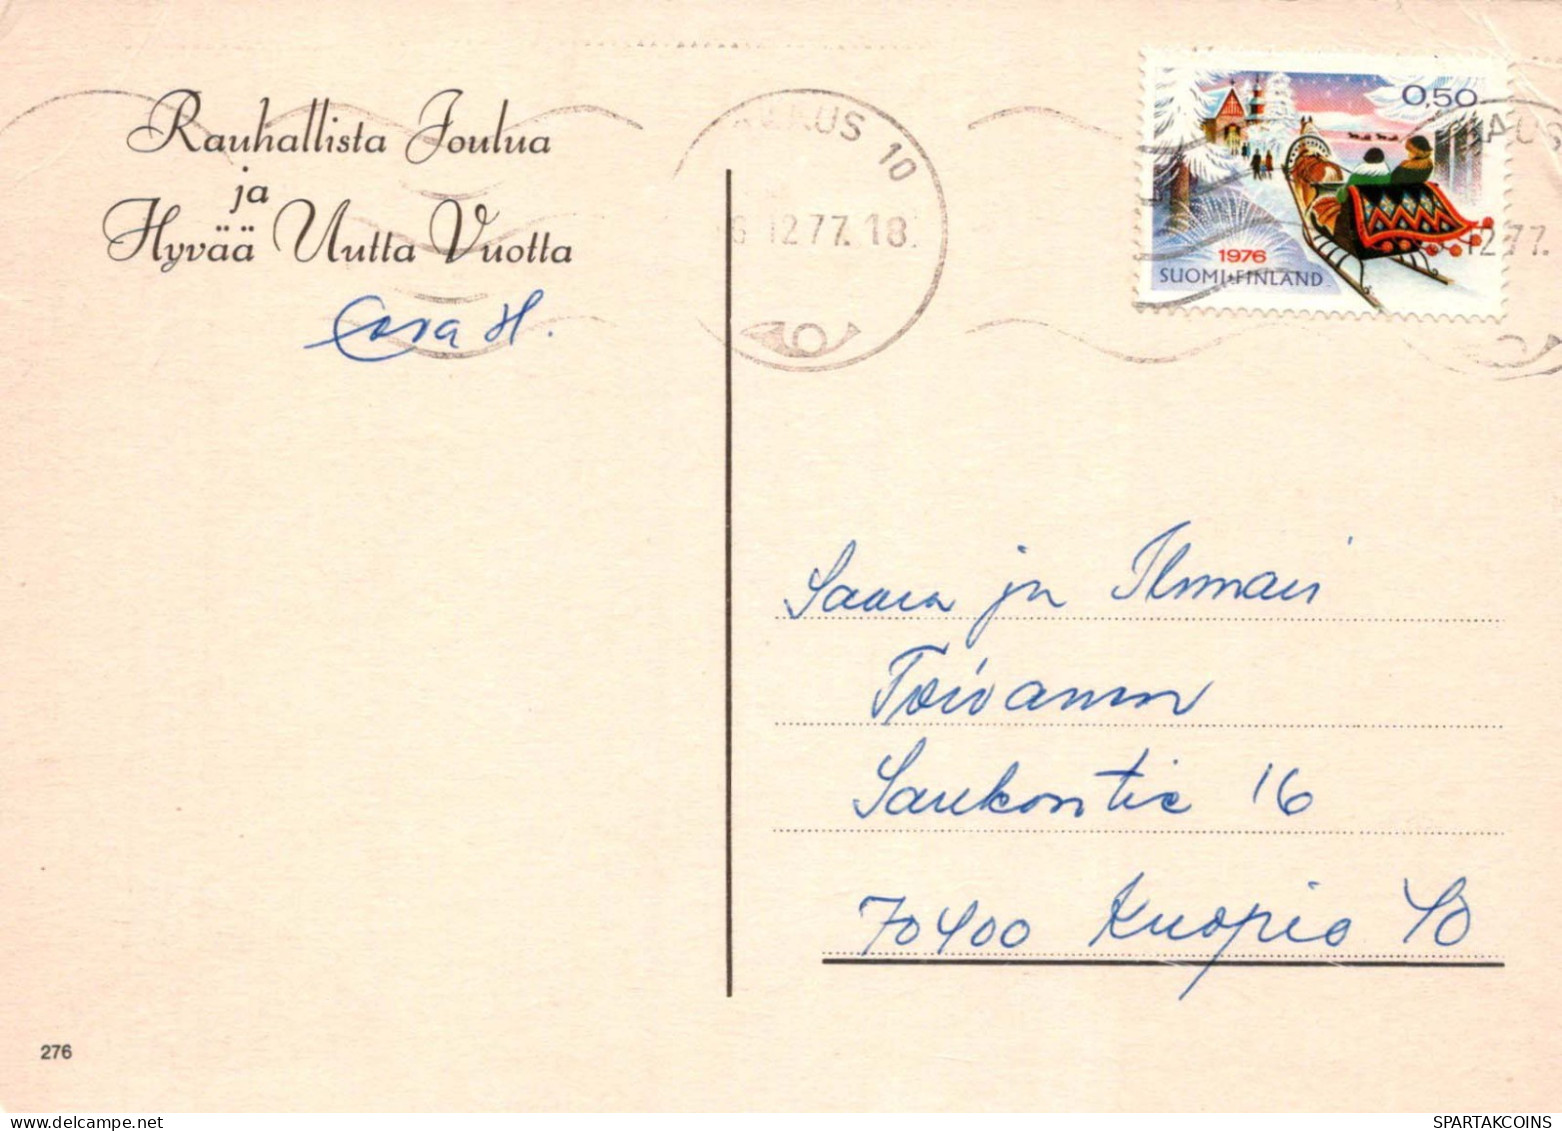 Rauhallista Joulua
ja
Hyvää Uutta Vuotta
H.
AUS 10
12.77.18.
0,50
1976
SUOMI-FINLAND
AUS
12.77.
Saara ja Ilmari
Toivanen
Saukontie 16
70400 Kuopio 40
276
SPARTAKCOINS